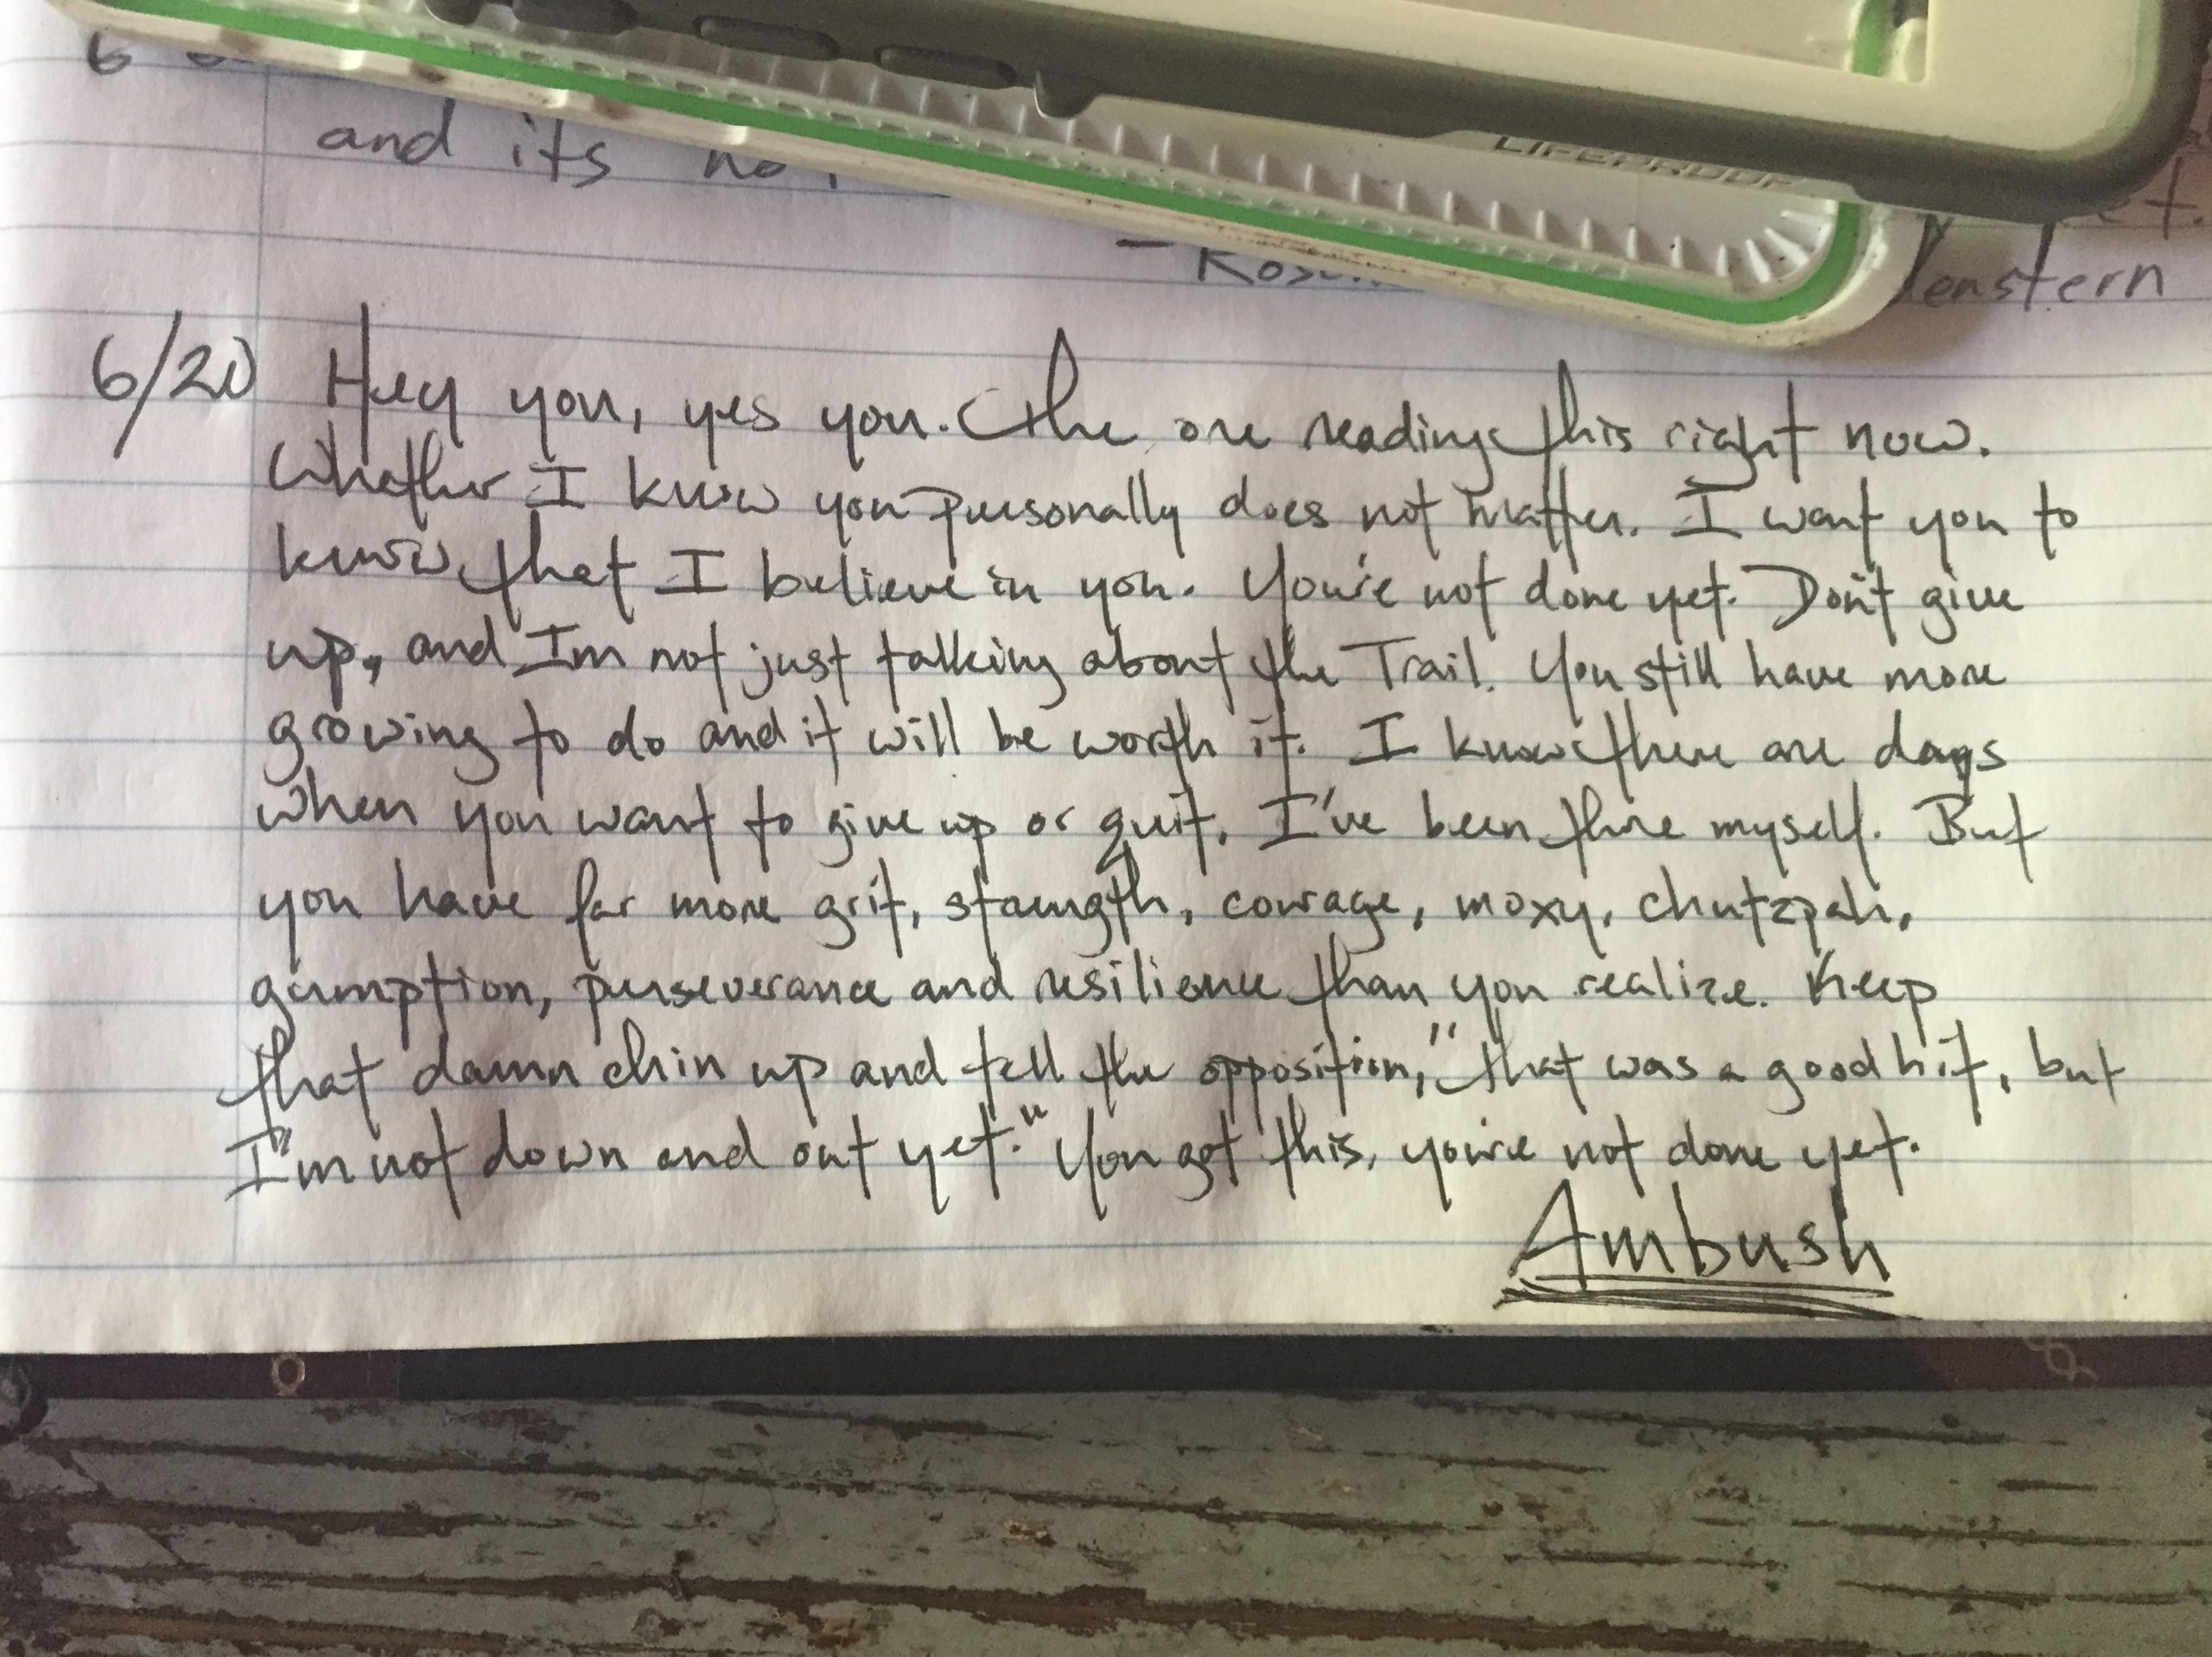 and its
LIFEPROOF
6/20 Hey you, yes you. The one reading this right now.
Whether I know you personally does not matter. I want you to
know that I believe in you. You're not done yet. Don't give
up, and I'm not just talking about the Trail. You still have more
growing to do and it will be worth it. I know there are days
when you want to give up or quit, I've been there myself. But
you have far more grit, strength, courage, moxy, chutzpah,
gumption, perseverance and resilience than you realize. Keep
that damn chin up and tell the opposition, "that was a good hit, but
I'm not down and out yet." You got this, you're not done yet.
Ambush